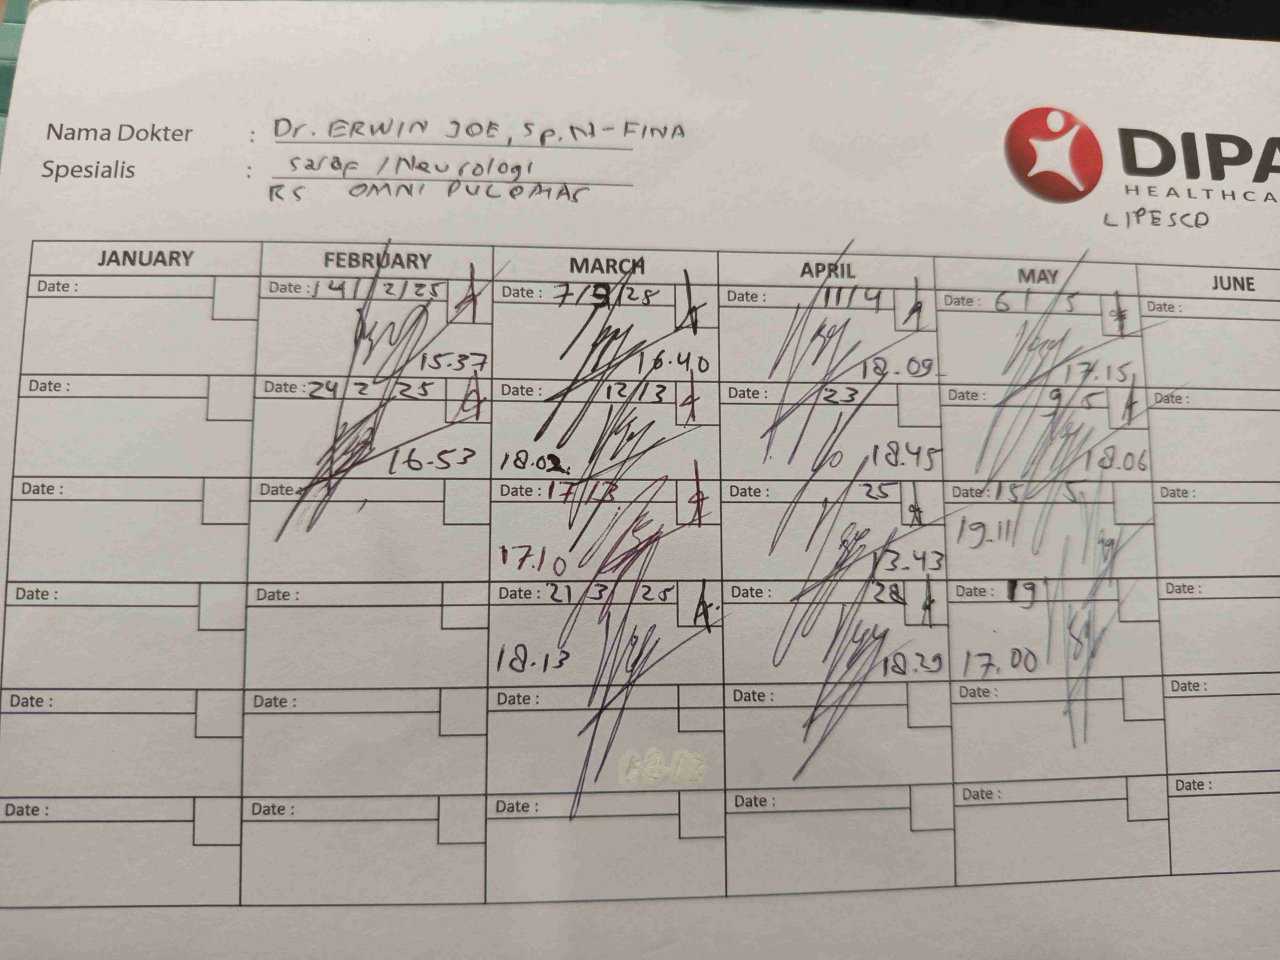 Nama Dokter : Dr. ERWIN JOE, Sp.N-FINA
Spesialis : saraf /Neurologi
RS OMNI PULOMAS
DIPA
HEALTHCA
LIPESCO
JANUARY FEBRUARY MARCH APRIL MAY JUNE
Date : Date : 14/2/25 Date : 7/3/25 Date : 11/4 Date : 6/5 Date :
15.37 16.40 18.09 17.15
Date : Date : 24 2 25 Date : 12/3 Date : 23 Date : 9 5 Date :
16.53 18.02 18.45 18.06
Date : Date Date : 17/3 Date : 25 Date : 15 5 Date :
17.10 13.43 19.11
Date : Date : Date : 21/3 25 Date : 28 Date : 19 Date :
18.13 18.29 17.00
Date : Date : Date : Date : Date : Date :
Date : Date : Date : Date : Date : Date :